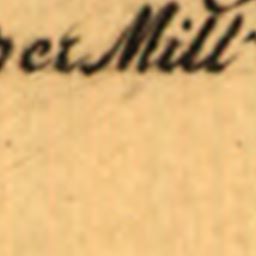 per Mill